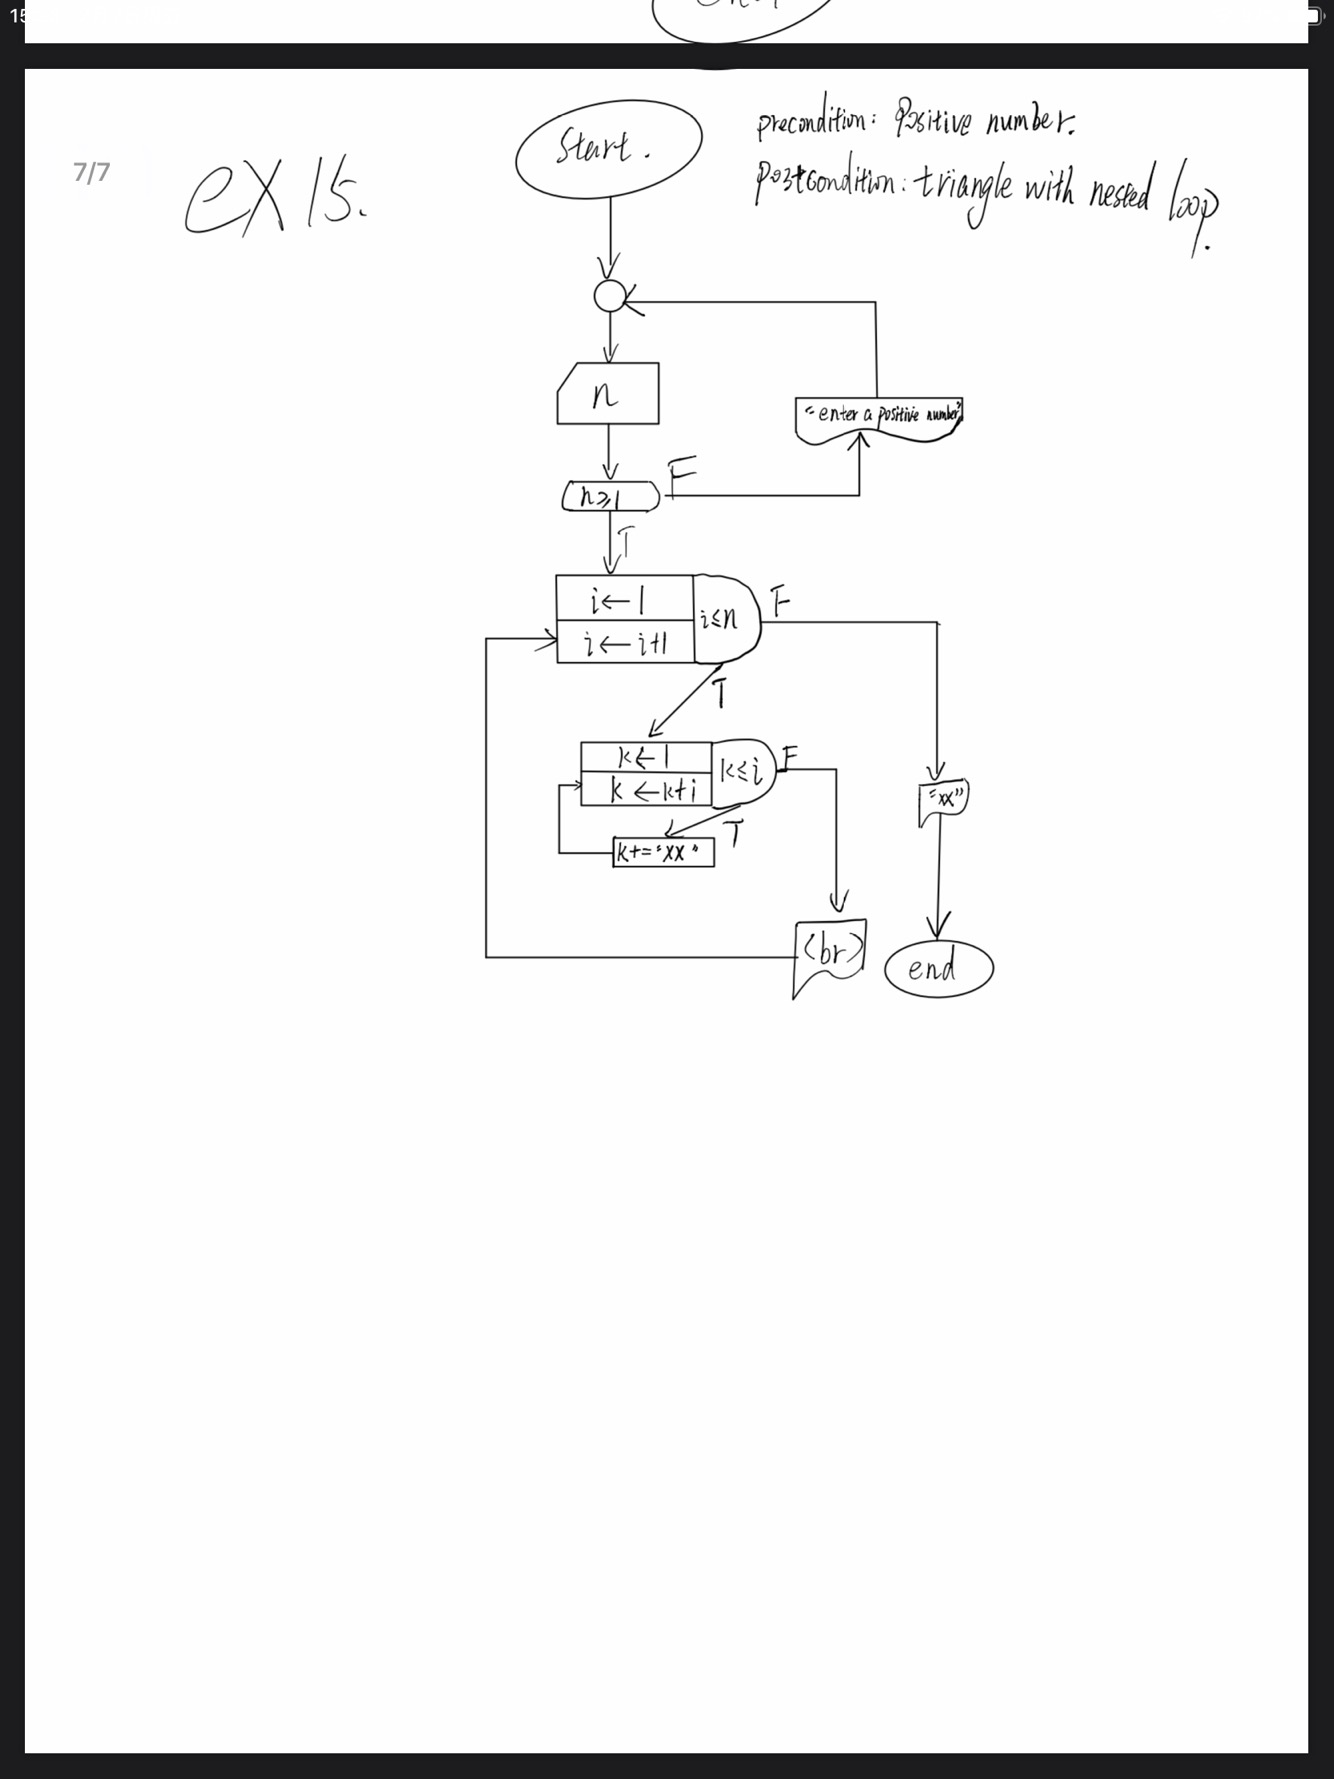 15
7/7
ex 15.
Start.
precondition: Positive number.
Postcondition: triangle with nested loop.
n
"enter a positive number"
n≥1
F
T
i←1
i←i+1
i≤n
F
T
k←1
k←k+i
k≤i
F
T
k+="xx"
"xx"
<br>
end